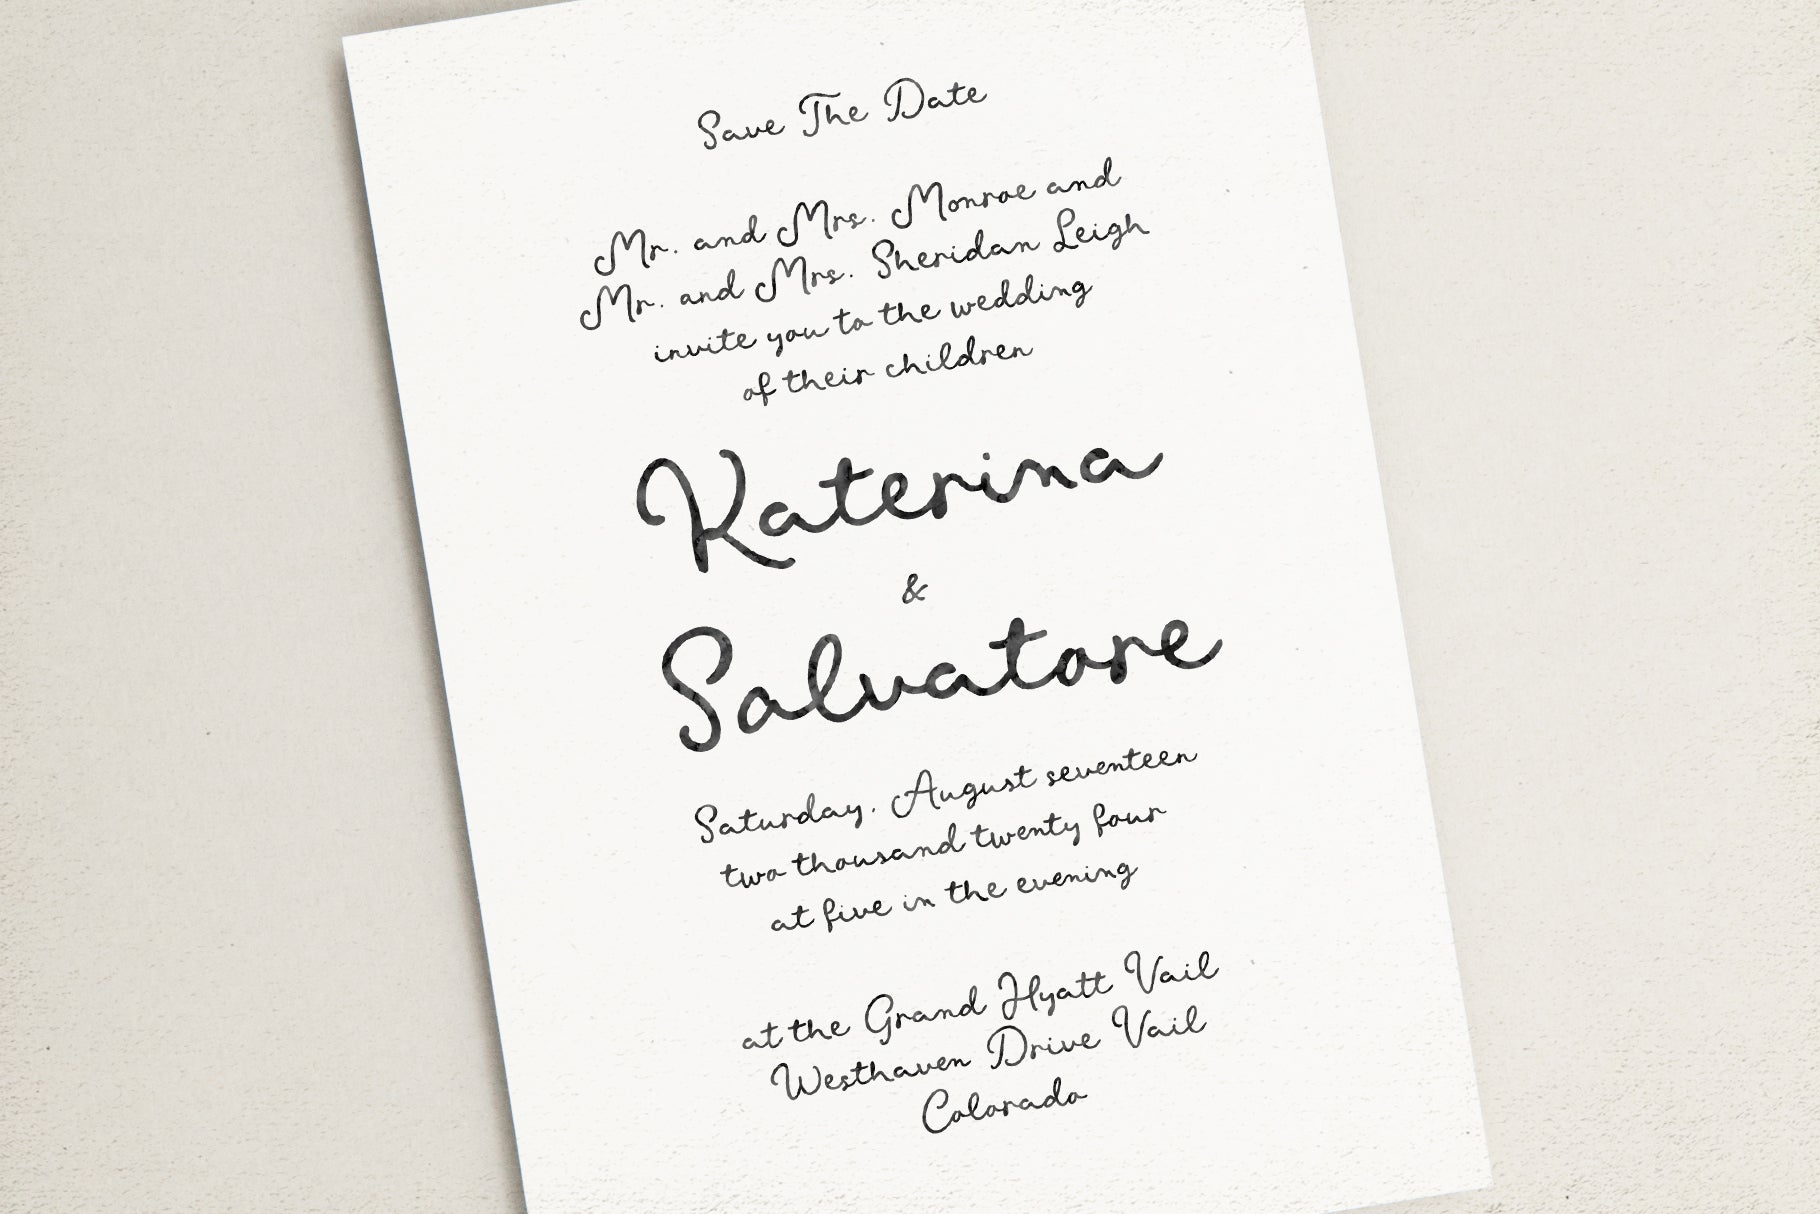 Save The Date
Mr. and Mrs. Monroe and
Mr. and Mrs. Sheridan Leigh
invite you to the wedding
of their children
Katerina
&
Salvatore
Saturday. August seventeen
two thousand twenty four
at five in the evening
at the Grand Hyatt Vail
Westhaven Drive Vail
Colorado